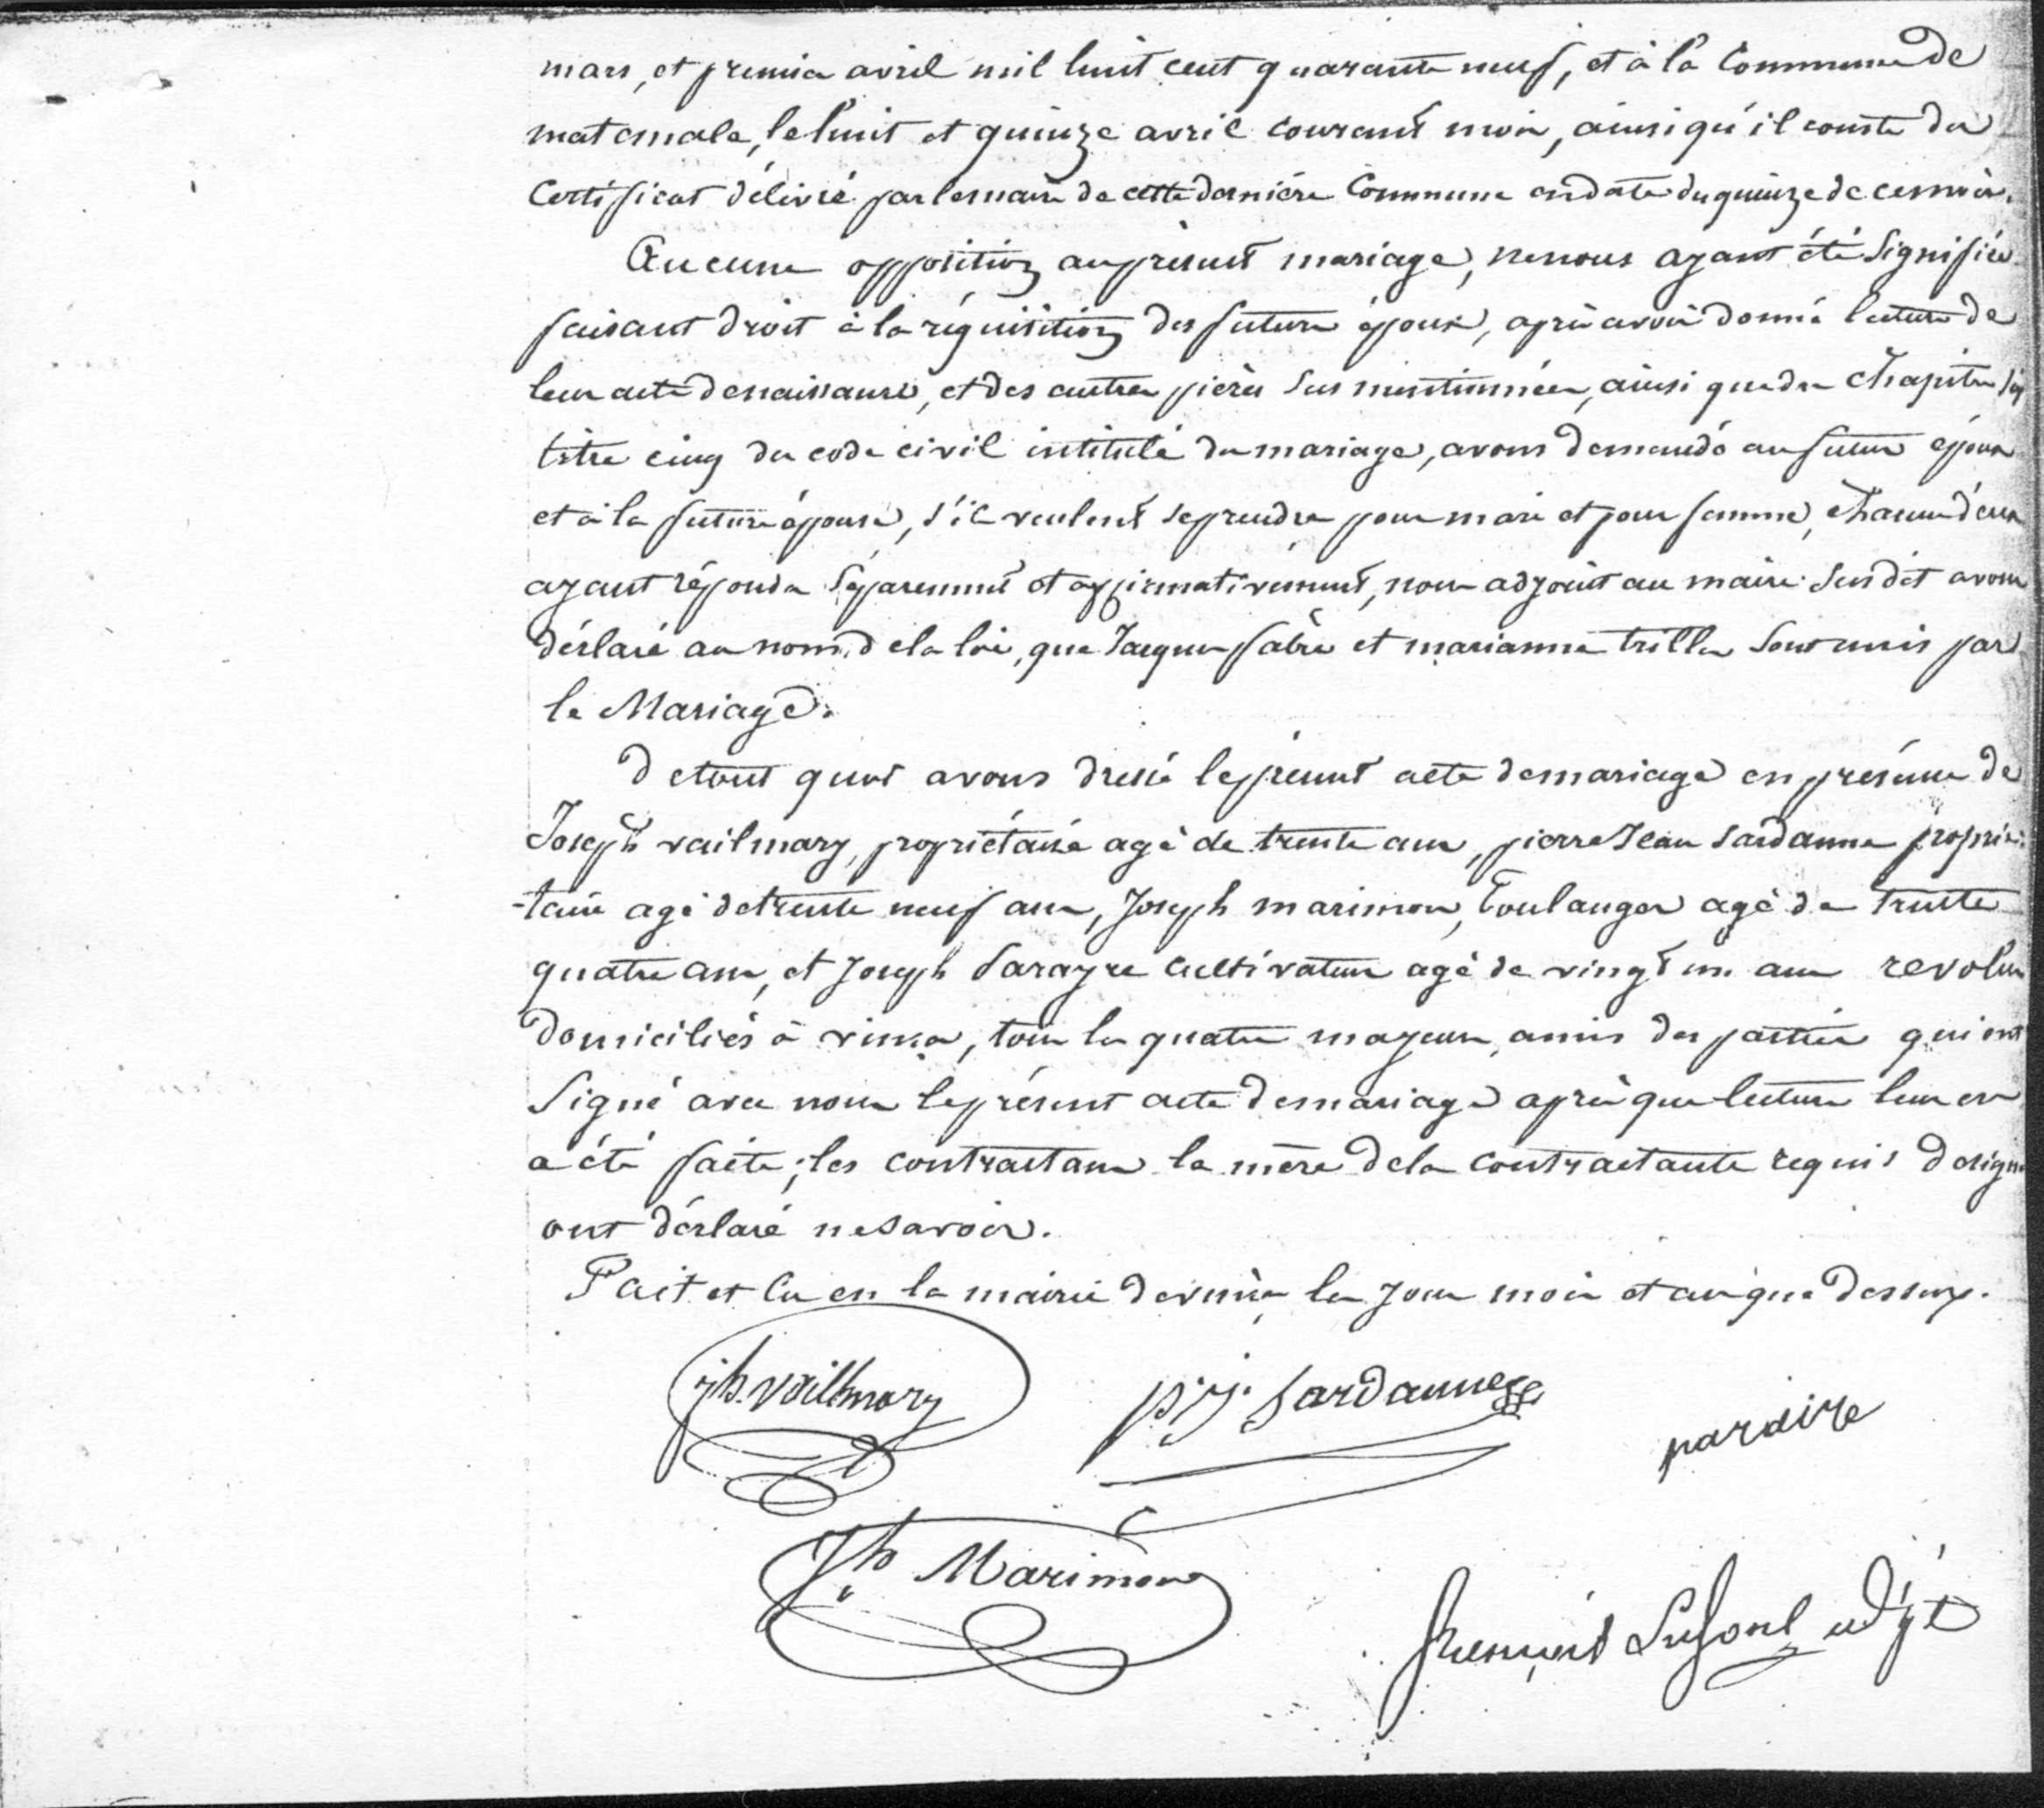 mars, et premier avril mil huit cent quarante neuf, et à la Commune de
matemale, le huit et quinze avril courant mois, ainsi qu'il conste du
Certificat délivré par le maire de cette dernière Commune en date du quinze de ce mois.
Aucune opposition au présent mariage, ne nous ayant été Signifiée
faisant droit à la réquisition des futurs époux, après avoir donné lecture de
leur acte de naissance, et des autres pièces sus mentionnées, ainsi que du Chapitre six
titre cinq du code civil intitulé du mariage, avons demandé au futur époux
et à la future épouse, s'ils veulent se prendre pour mari et pour femme, chacun d'eux
ayant répondu Séparement et affirmativement, nous adjoint au maire susdit avons
déclaré au nom de la loi, que Jacques fabre et marianne trilla sont unis par
le Mariage.
De tout quoi avons dressé le présent acte de mariage en présence de
Joseph vailmary, propriétaire agé de trente ans, pierre Jean Sardanne proprié-
-taire agé de trente neuf ans, Joseph marimon, boulanger agé de trente
quatre ans, et Joseph Parayre cultivateur agé de vingt un ans revolus
domiciliés à vinça, tous les quatre majeurs, amis des parties qui ont
Signé avec nous le présent acte de mariage après que lecture leur en
a été faite; les contractans la mère de la contractante requis de signer
ont déclaré ne savoir.
Fait et lu en la mairie de vinça les jour mois et an que dessus.
jh. vailmary
p. j. Sardanne
paraire
Jh Marimon
françois adjt